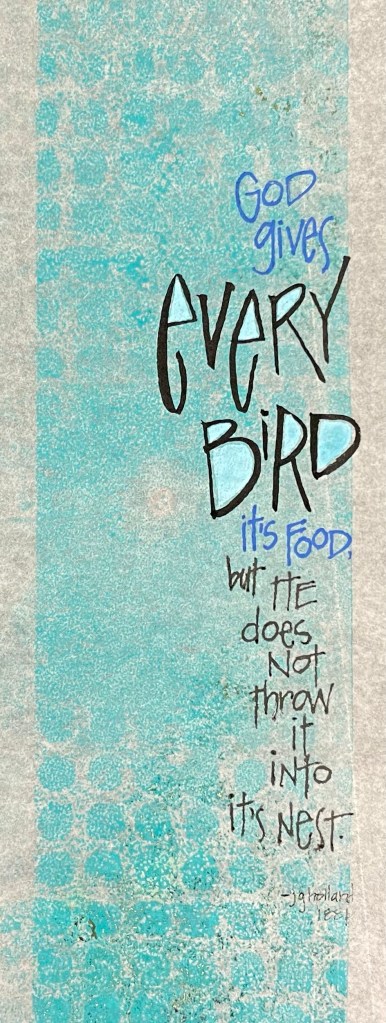 GOD
gives
eVeRY
BiRD
it's FOOD,
but HE
does
Not
throw
it
iNto
it's Nest.
-jgholland
1881